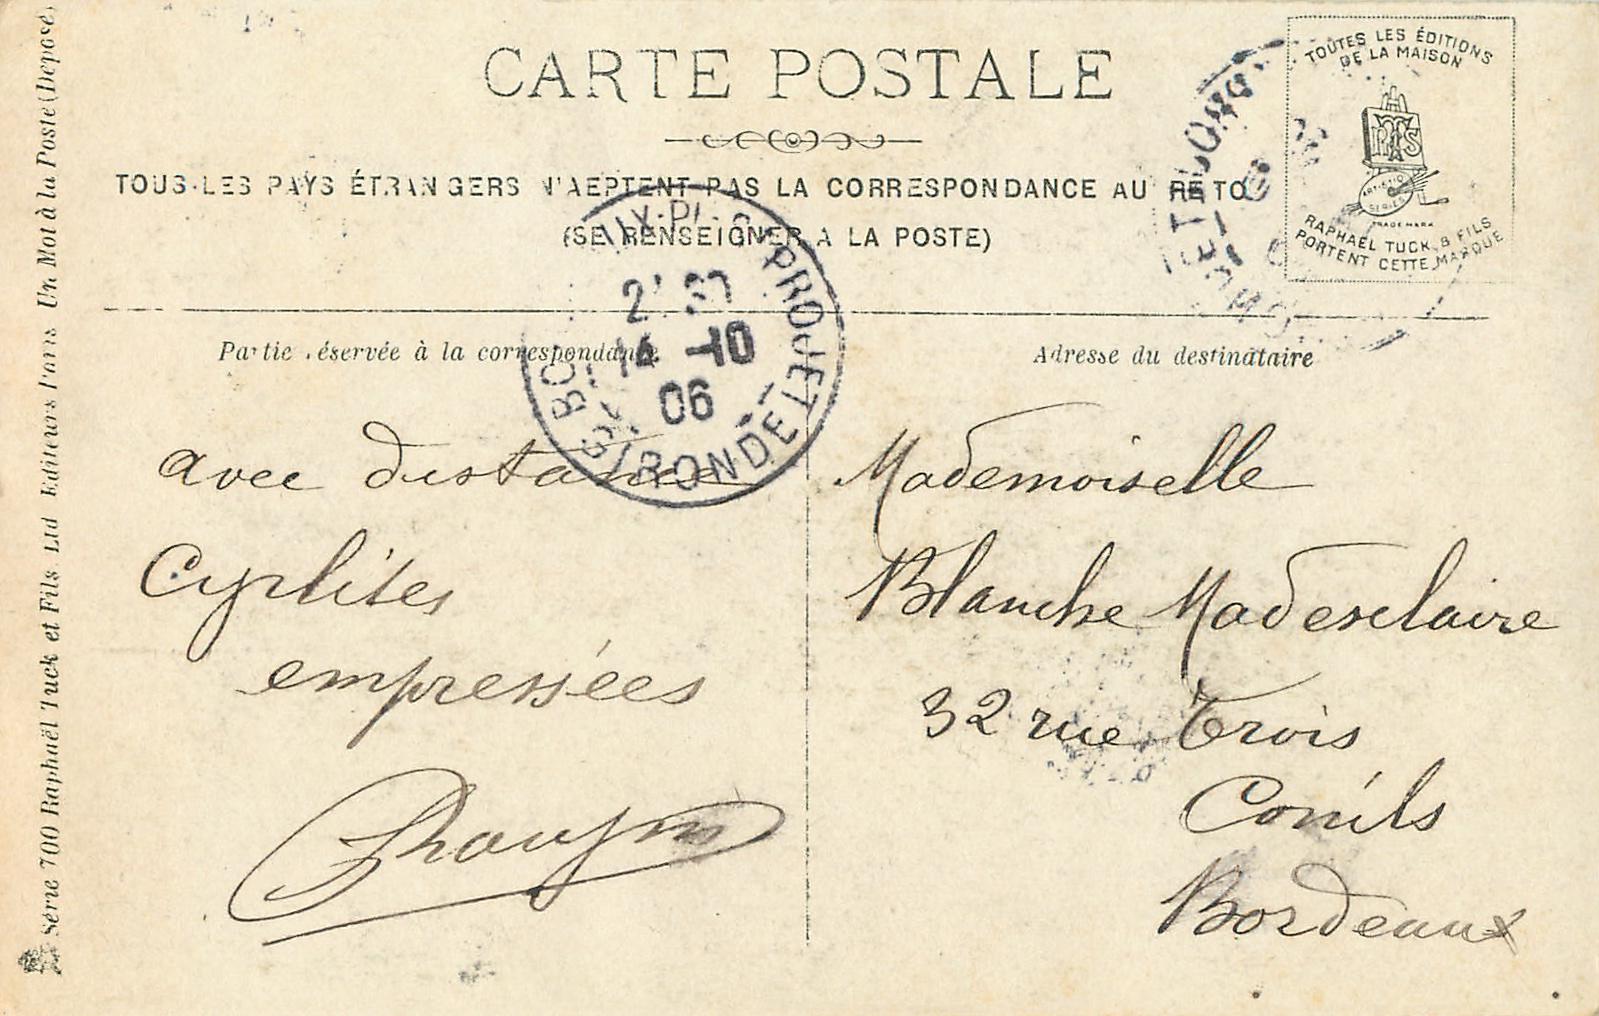 CARTE POSTALE
TOUS LES PAYS ÉTRANGERS N'AEPTENT PAS LA CORRESPONDANCE AU RETO
(SE RENSEIGNER A LA POSTE)
TOUTES LES ÉDITIONS
DE LA MAISON
ARTISTIC
SERIES
TRADE MARK
RAPHAEL TUCK & FILS
PORTENT CETTE MARQUE
Partie réservée à la correspondance
Adresse du destinataire
GIRONDE
14 -10
06
avec distance
empressées
Mademoiselle
Blanche Madesclaire
32 rue Trois
Conils
Bordeaux
Série 700 Raphaël Tuck et Fils Ltd Editeurs Paris Un Mot à la Poste (Déposé)